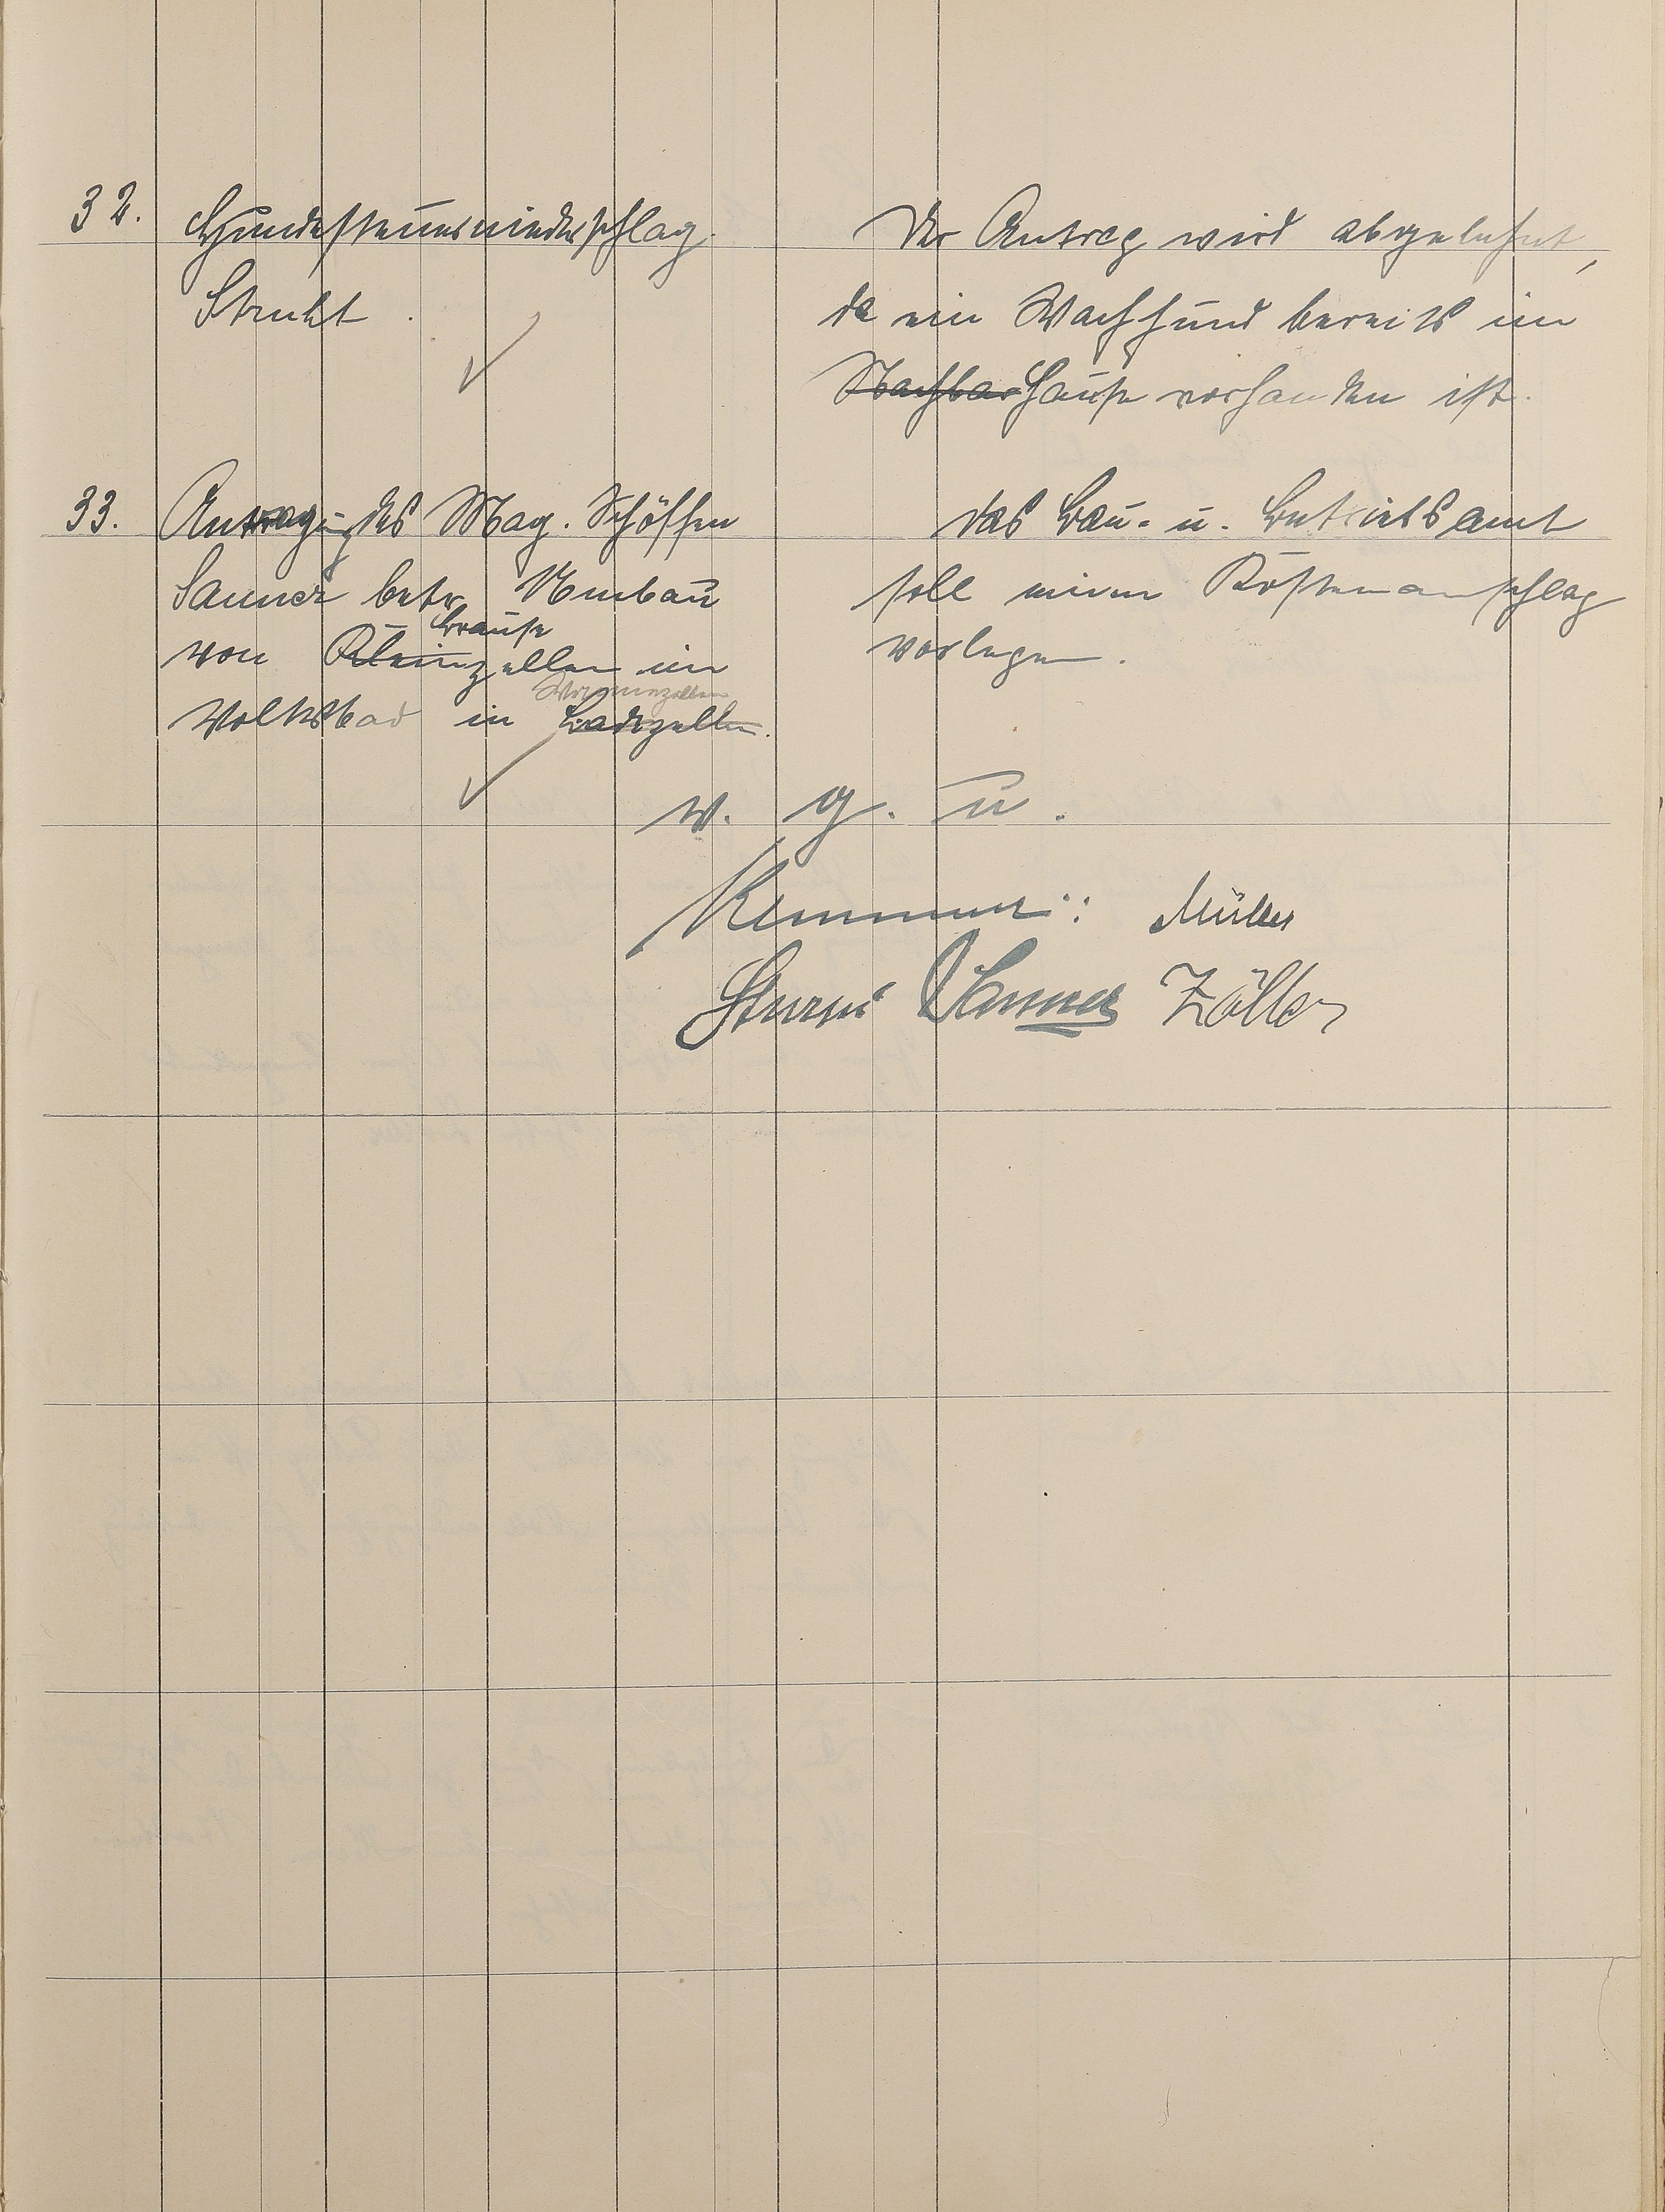 32. Hundesteuerniederschlag
Strukt.
Der Antrag wird abgelehnt,
da ein Wachhund bereits im
Nachbarhause vorhanden ist.
33. Antrag des Mag. Schöffen
Sanner betr. Umbau
Brause
von Kleinzellen im
Wannenzellen
Volksbad in Badezellen.
Das Bau- u. Betriebsamt
soll einen Kostenanschlag
vorlegen.
w. g. u.
Müller
Sturm Sanner Zöller